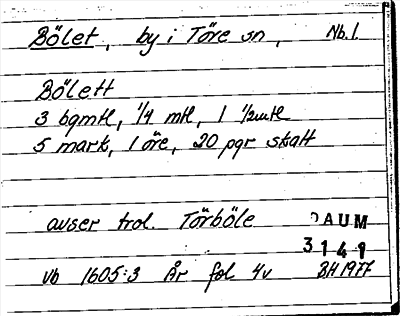 Bölet, by i Töre sn, Nb.l.
Bölett
3 bgmtl, 1/4 mtl, 1 1/2mtl
5 mark, 1 öre, 20 pgr skatt
avser trol. Törböle DAUM
3141
vb 1605:3 År fol 4v BH 1977